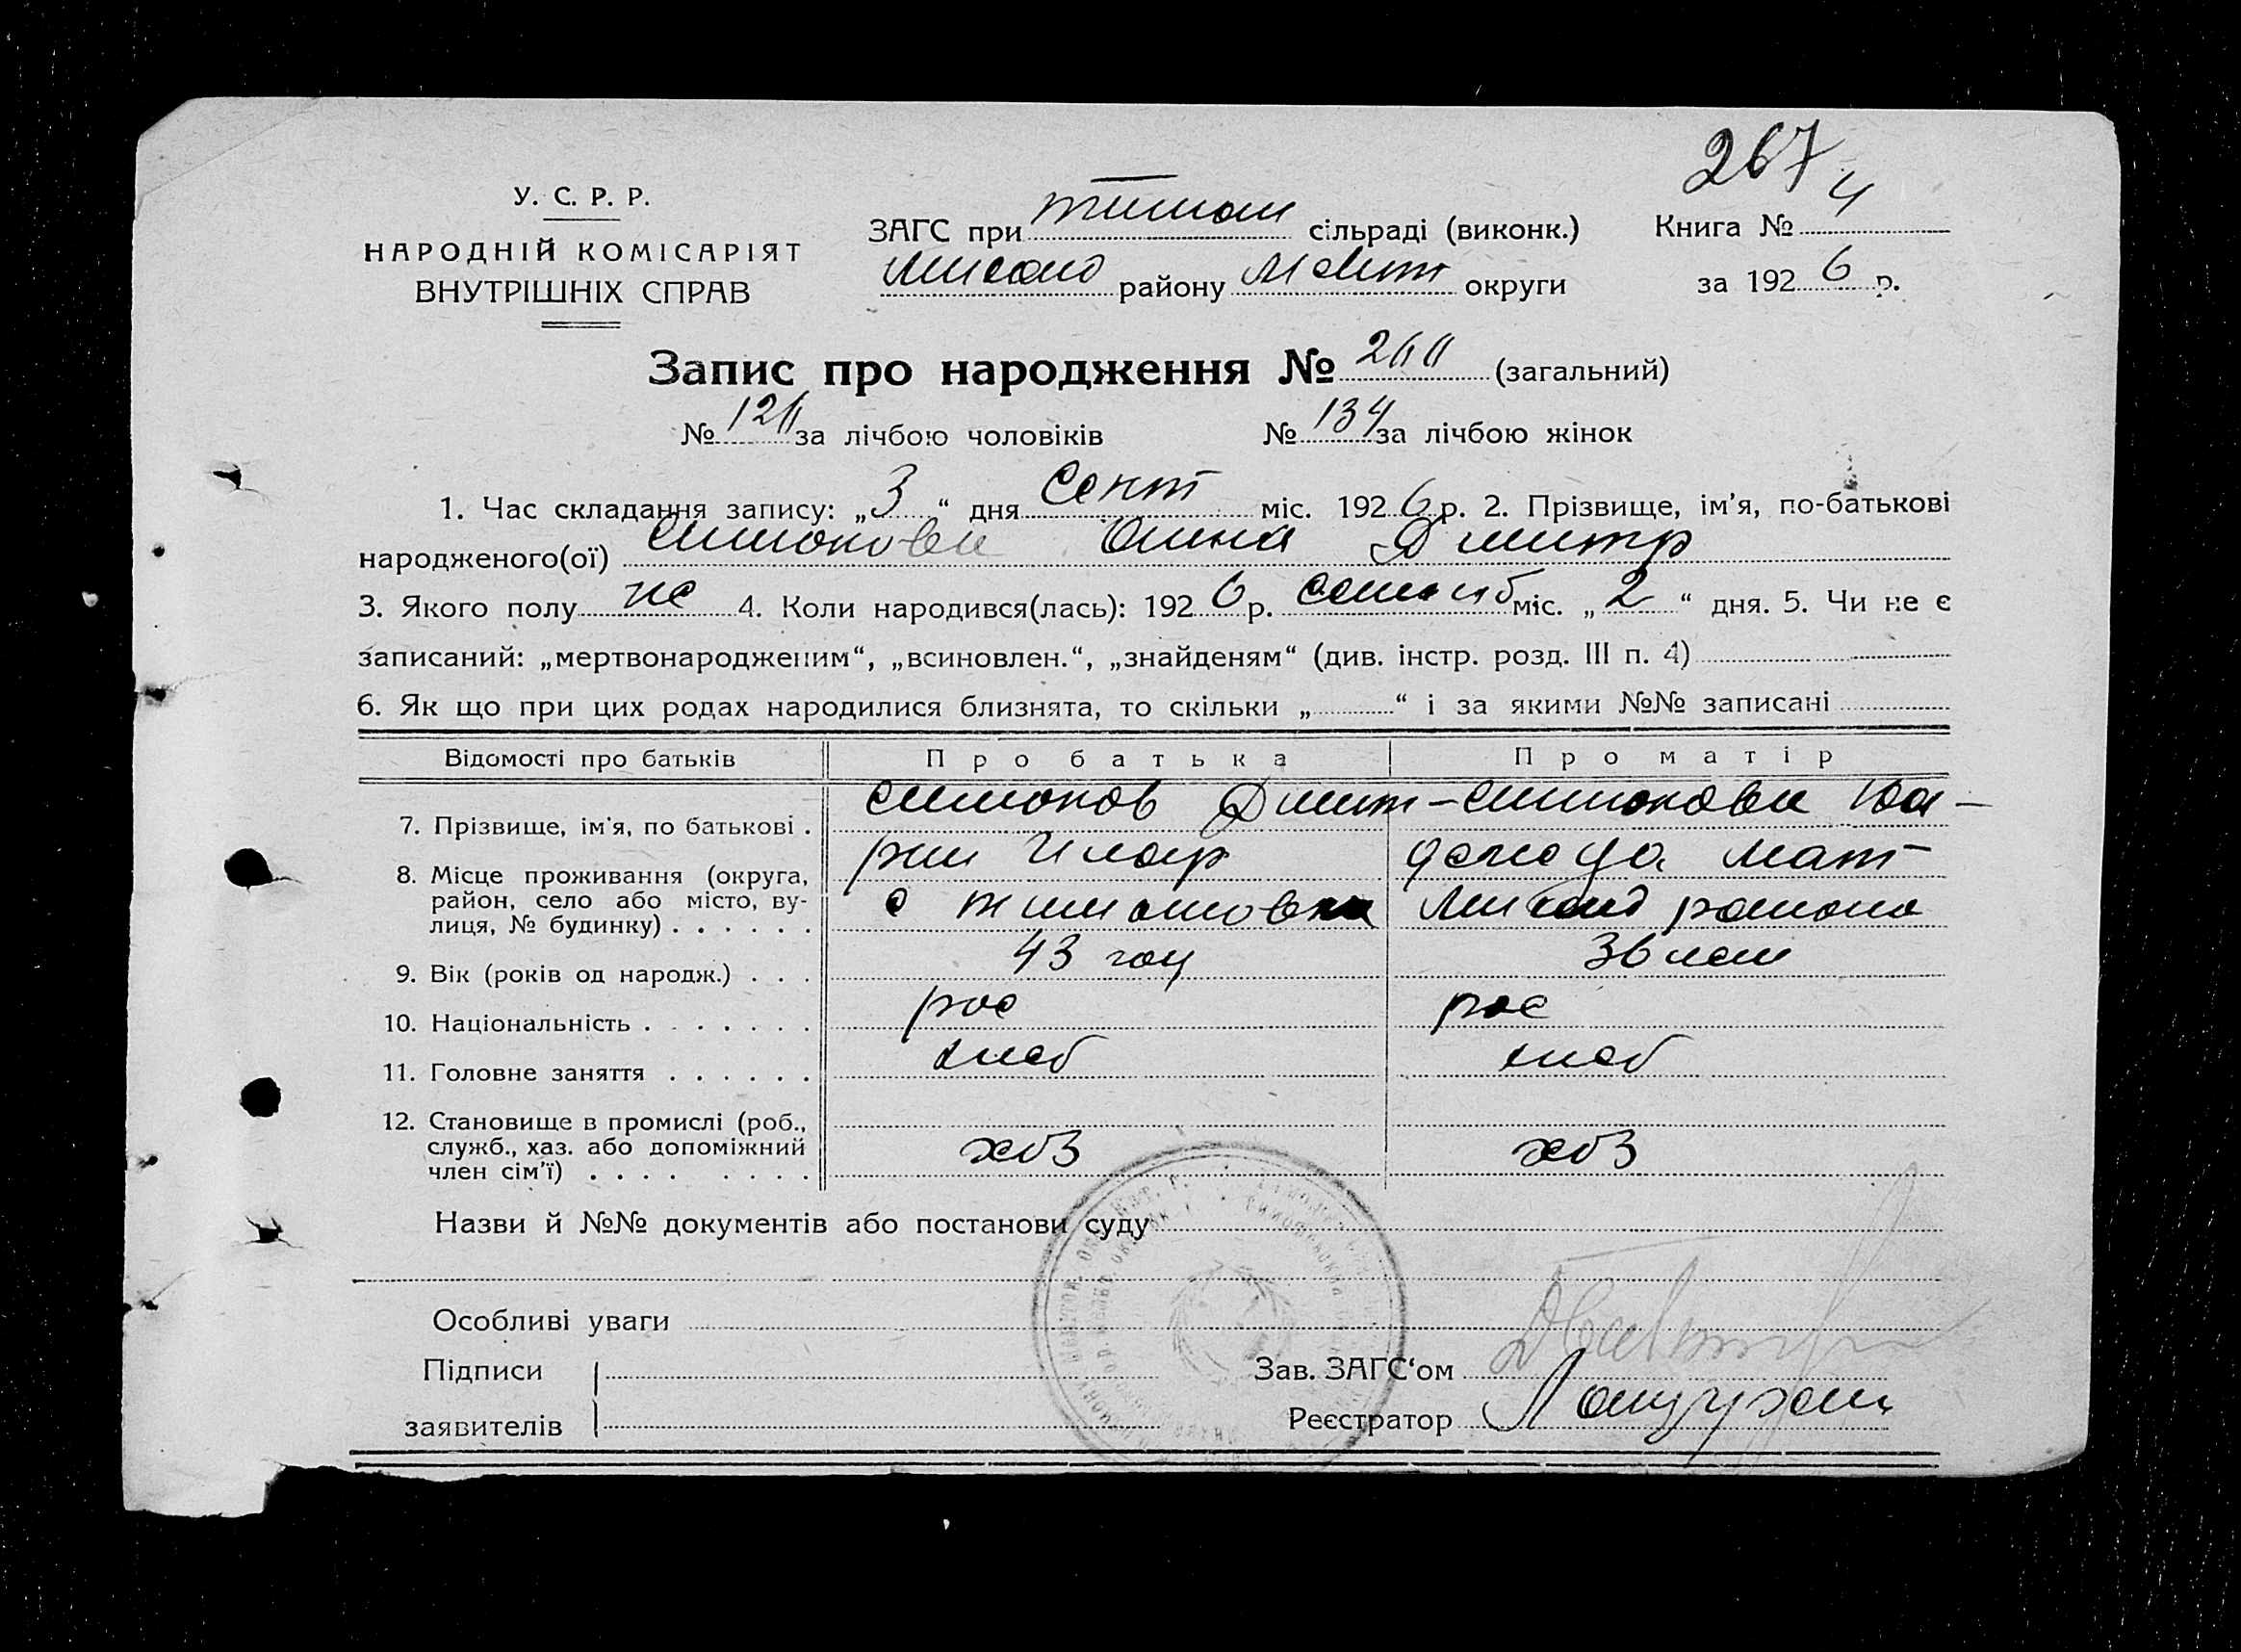 267
У. С. Р. Р.
НАРОДНІЙ КОМІСАРІЯТ
ВНУТРІШНІХ СПРАВ
ЗАГС при тимош сільраді (виконк.)
району Меліт округи
Книга № 4
за 1926 р.
Запис про народження № 260 (загальний)
№ 126 за лічбою чоловіків № 134 за лічбою жінок
1. Час складання запису: „3“ дня Сент міс. 1926 р. 2. Прізвище, ім'я, по-батькові
народженого(ої) Симонова Анна Дмитр
3. Якого полу же 4. Коли народився(лась): 1926 р. міс. „2“ дня. 5. Чи не є
записаний: „мертвонародженим“, „всиновлен.“, „знайденям“ (див. інстр. розд. III п. 4)
6. Як що при цих родах народилися близнята, то скільки „ “ і за якими №№ записані
Відомості про батьків Про батька Про матір
7. Прізвище, ім'я, по батькові . Симонов Дмит- Симонова
рии Илар Мат
8. Місце проживання (округа, район, село або місто, вулиця, № будинку) . . . . . . с тимошовка района
9. Вік (років од народж.) . . . 43 год 36 лет
10. Національність . . . . . . . рос рос
11. Головне заняття . . . . . . хлеб хлеб
12. Становище в промислі (роб., служб., хаз. або допоміжний член сім'ї) . . . . . . . . хоз хоз
Назви й №№ документів або постанови суду
Особливі уваги
Підписи
заявителів
Зав. ЗАГС‘ом
Реєстратор